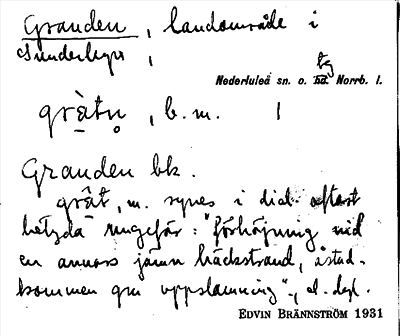 Granden, landområde i
Sunderbyn,
tg
Nederluleå sn. o. hd. Norrb. l.
grà̱tṇ, b. m. |
Granden bk.
grât, m. synes i dial. oftast
betyda ungefär: "förhöjning vid
en annars jämn bäckstrand, åstad-
kommen gm uppslamning"., el. dyl.
EDVIN BRÄNNSTRÖM 1931